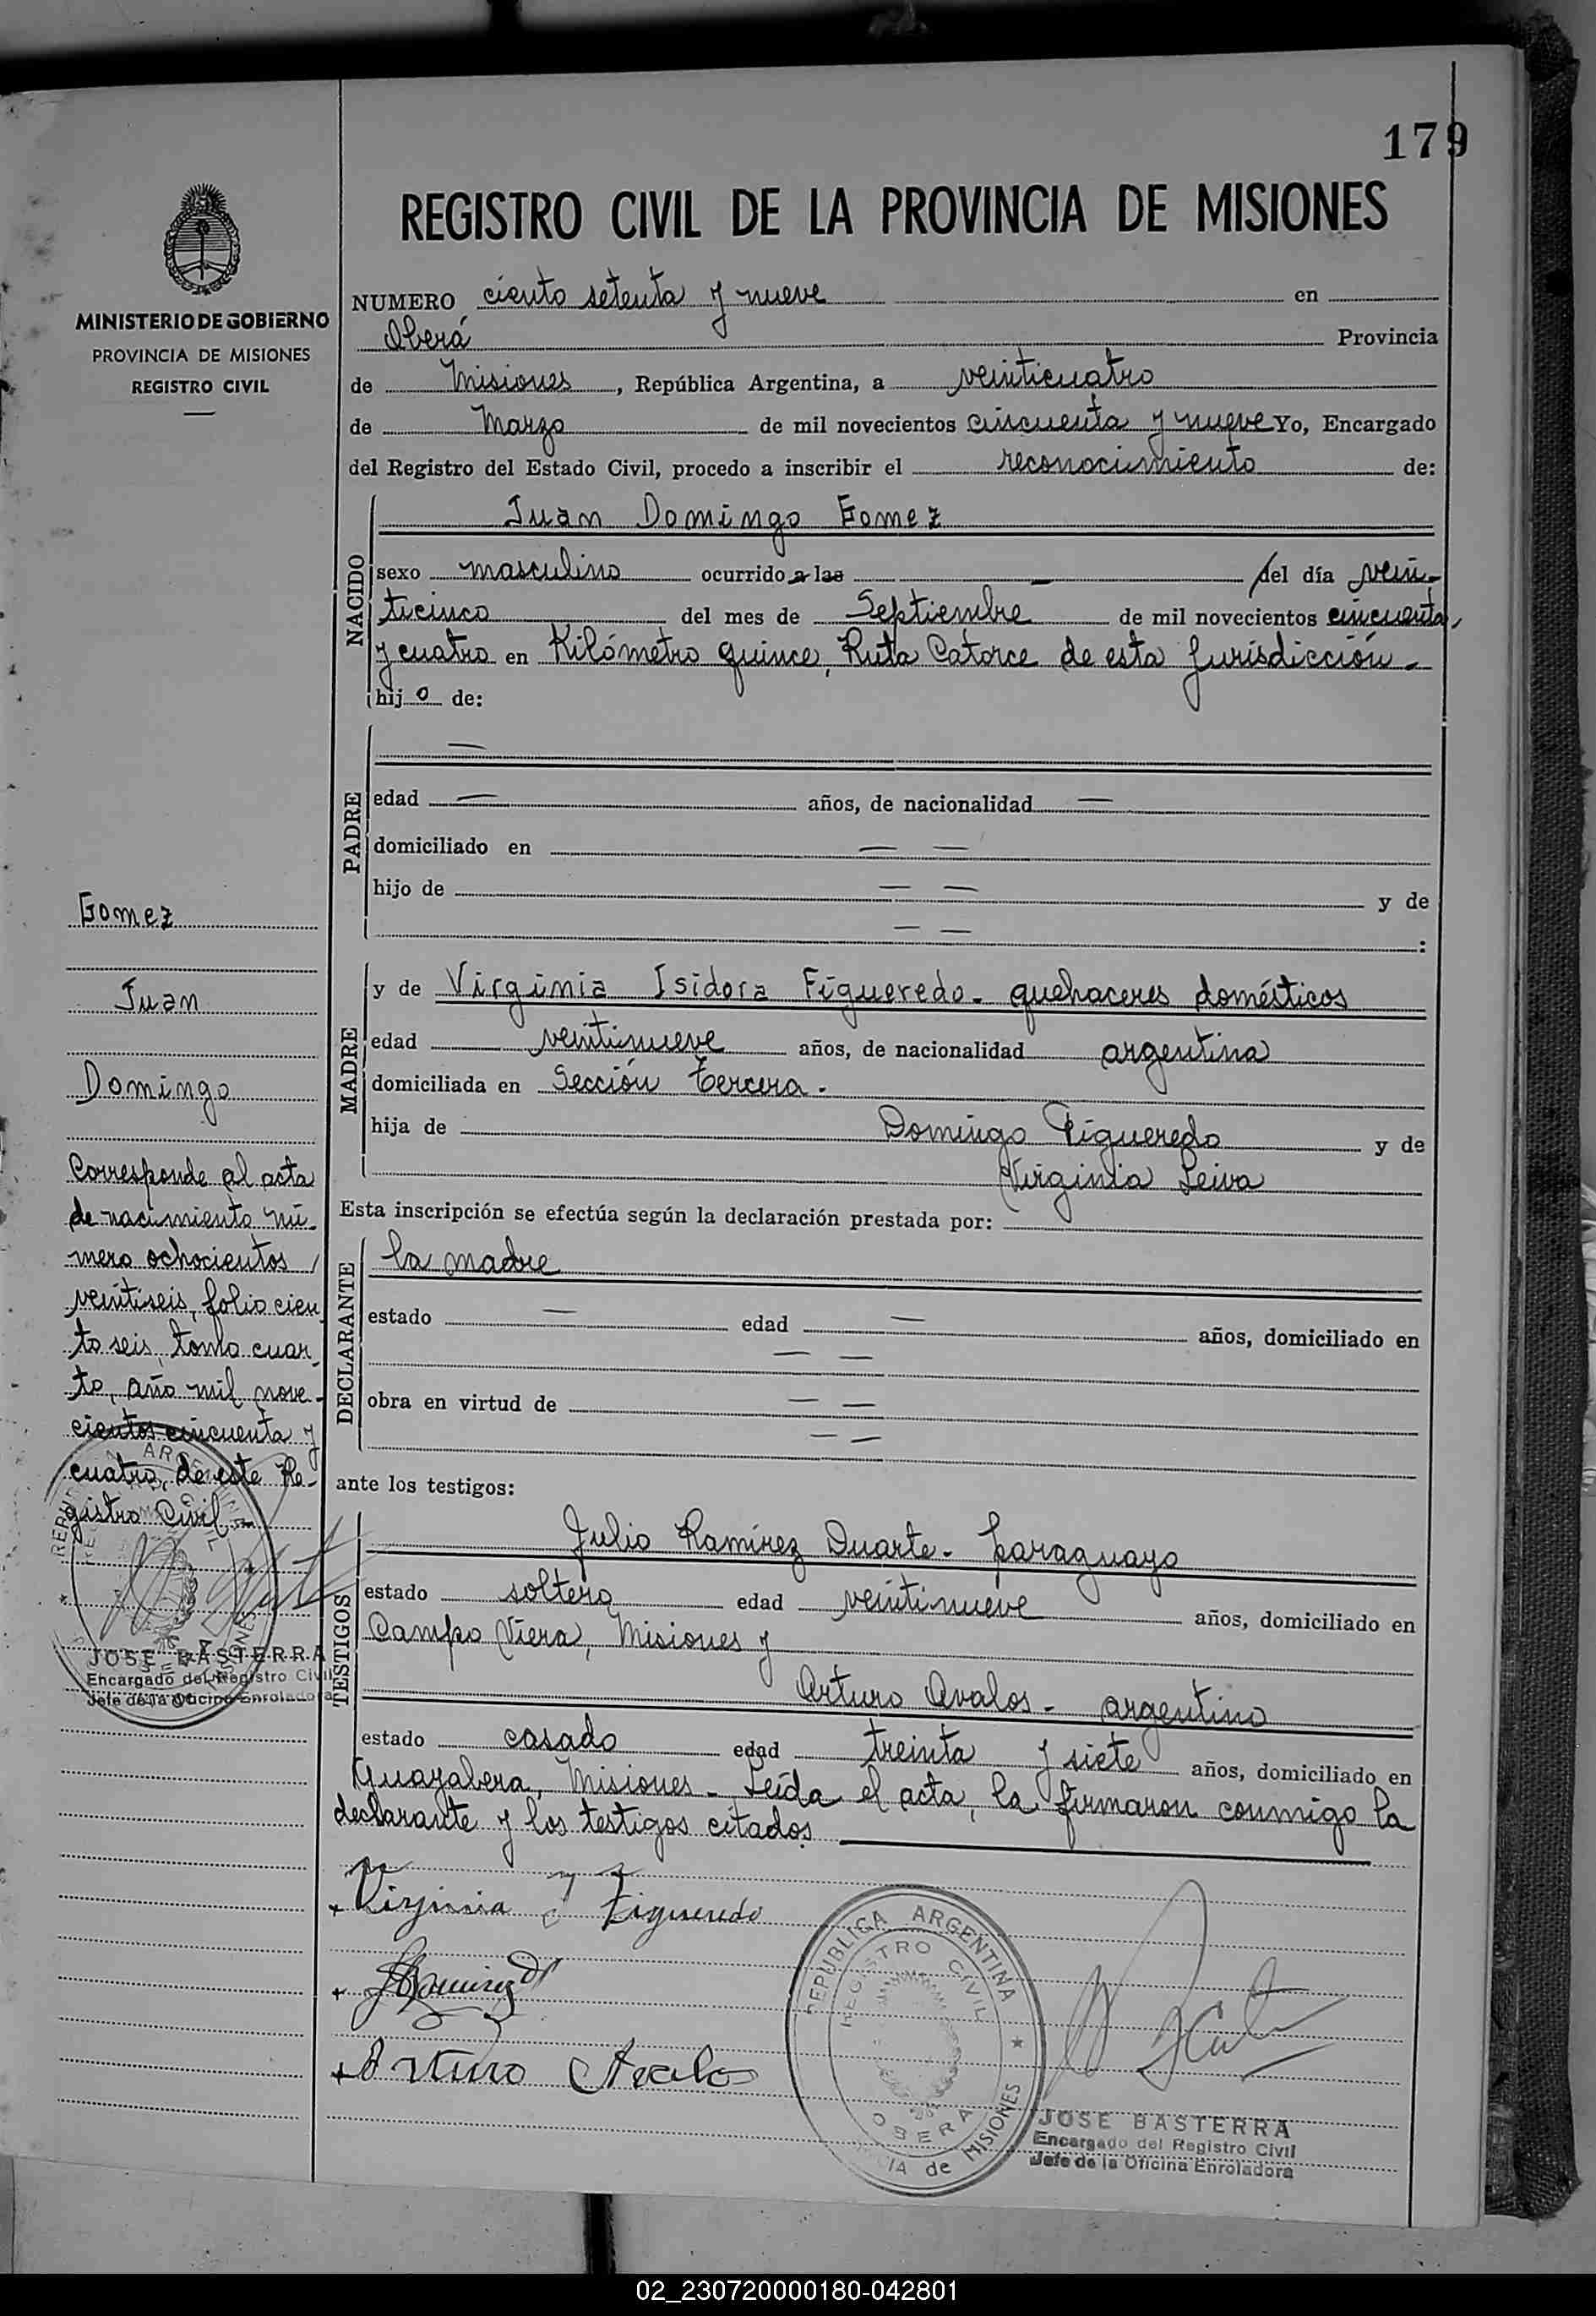 179
REGISTRO CIVIL DE LA PROVINCIA DE MISIONES
MINISTERIO DE GOBIERNO
PROVINCIA DE MISIONES
REGISTRO CIVIL
NUMERO ciento setenta y nueve en
Oberá Provincia
de Misiones, República Argentina, a veinticuatro
de Marzo de mil novecientos cincuenta y nueve Yo, Encargado
del Registro del Estado Civil, procedo a inscribir el reconocimiento de:
NACIDO
Juan Domingo Gomez
sexo masculino ocurrido a las — del día vein-
ticinco del mes de Septiembre de mil novecientos cincuenta
y cuatro en Kilómetro quince, Ruta Catorce de esta Jurisdicción.
hijo de:
PADRE
—
edad — años, de nacionalidad —
domiciliado en — —
hijo de — — y de
— — :
MADRE
y de Virginia Isidora Figueredo. quehaceres domésticos
edad veintinueve años, de nacionalidad argentina
domiciliada en Sección tercera.
hija de Domingo Figueredo y de
Virginia Leiva
Esta inscripción se efectúa según la declaración prestada por:
DECLARANTE
la madre
estado — edad — años, domiciliado en
— —
obra en virtud de — —
— —
ante los testigos:
TESTIGOS
Julio Ramírez Duarte. paraguayo
estado soltero edad veintinueve años, domiciliado en
Campo Viera, Misiones y
Arturo Avalos - argentino
estado casado edad treinta y siete años, domiciliado en
Guarabera, Misiones - Leída el acta, la firmaron conmigo la
declarante y los testigos citados.
+ Virjinia Y Figueredo
+ JRamirez D
+ Arturo Avalos
REPUBLICA ARGENTINA
REGISTRO CIVIL
OBERA
CIA de MISIONES
JOSE BASTERRA
Encargado del Registro Civil
Jefe de la Oficina Enroladora
Gomez
Juan
Domingo
Corresponde al acta
de nacimiento nú-
mero ochocientos
veintiseis, folio cien
to seis, tomo cuar
to, año mil nove-
cientos cincuenta y
cuatro, de este Re-
gistro Civil.-
JOSE BASTERRA
Encargado del Registro Civil
Jefe de la Oficina Enroladora
02_230720000180-042801